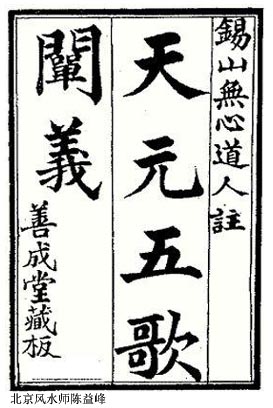 錫山無心道人註
天元五歌
闡義
善成堂藏板
北京风水师陈益峰